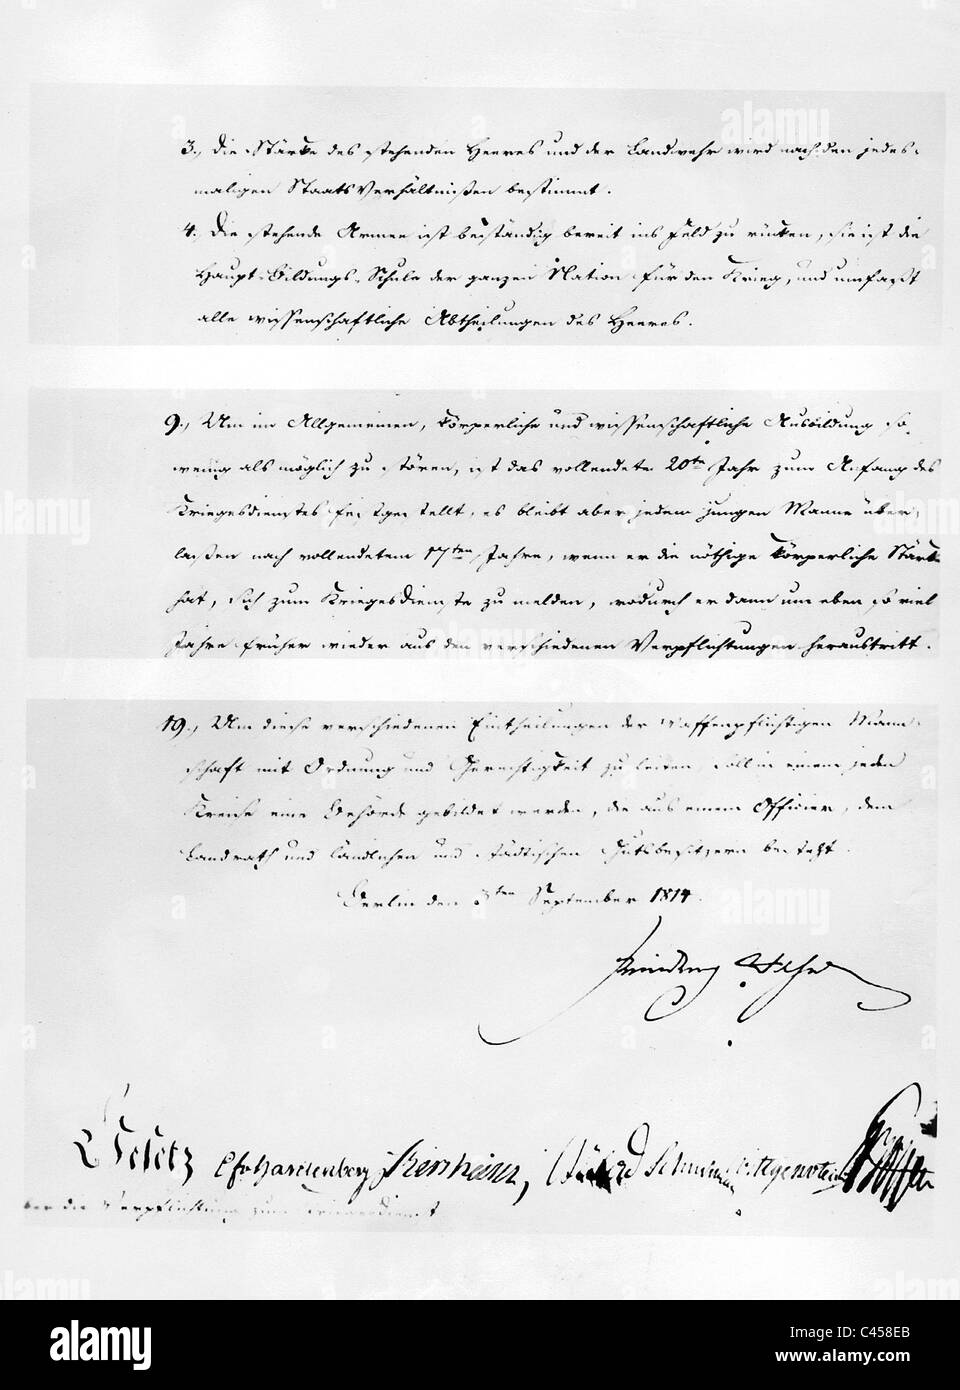 3., Die Stärke des stehenden Heeres und der Landwehr wird nach den jedes-
maligen Staats Verhältnißen bestimmt.
4. Die stehende Armee ist beständig bereit ins Feld zu rücken, sie ist die
Haupt-Bildungs-Schule der ganzen Nation für den Krieg, und umfaßt
alle wissenschaftliche Abtheilungen des Heeres.
9., Um im Allgemeinen, körperliche und wissenschaftliche Ausbildung so
wenig als möglich zu stören, ist das vollendete 20te Jahr zum Anfang des
Kriegesdienstes festgestellt, es bleibt aber jedem jungen Manne über-
laßen nach vollendetem 17ten Jahre, wenn er die nöthige körperliche Stärke
hat, sich zum Kriegesdienste zu melden, wodurch er dann um eben so viel
Jahre früher wieder aus den verschiedenen Verpflichtungen heraustritt.
19., Um diese verschiedenen Eintheilungen der waffenpflichtigen Mann-
schaft mit Ordnung und Gerechtigkeit zu leiten, soll in einem jeden
Kreise eine Behörde gebildet werden, die aus einem Officier, dem
Landrath und ländlichen und städtischen Gutsbesitzern besteht.
Berlin den 3ten September 1814.
Friedrich Wilhelm
Gesetz CFvHardenberg Kircheisen, Bülow Schuckmann Wittgenstein Boyen
über die Verpflichtung zum Kriegesdienst
alamy
a
Image ID: C458EB
www.alamy.com